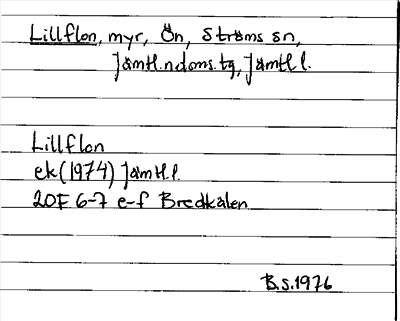 Lillflon, myr, Ön, Ströms sn,
Jämtl.ndoms.tg, Jämtl l.
Lillflon
ek(1974) Jämtl.l.
20F 6-7 e-f Bredkälen
B.S.1976